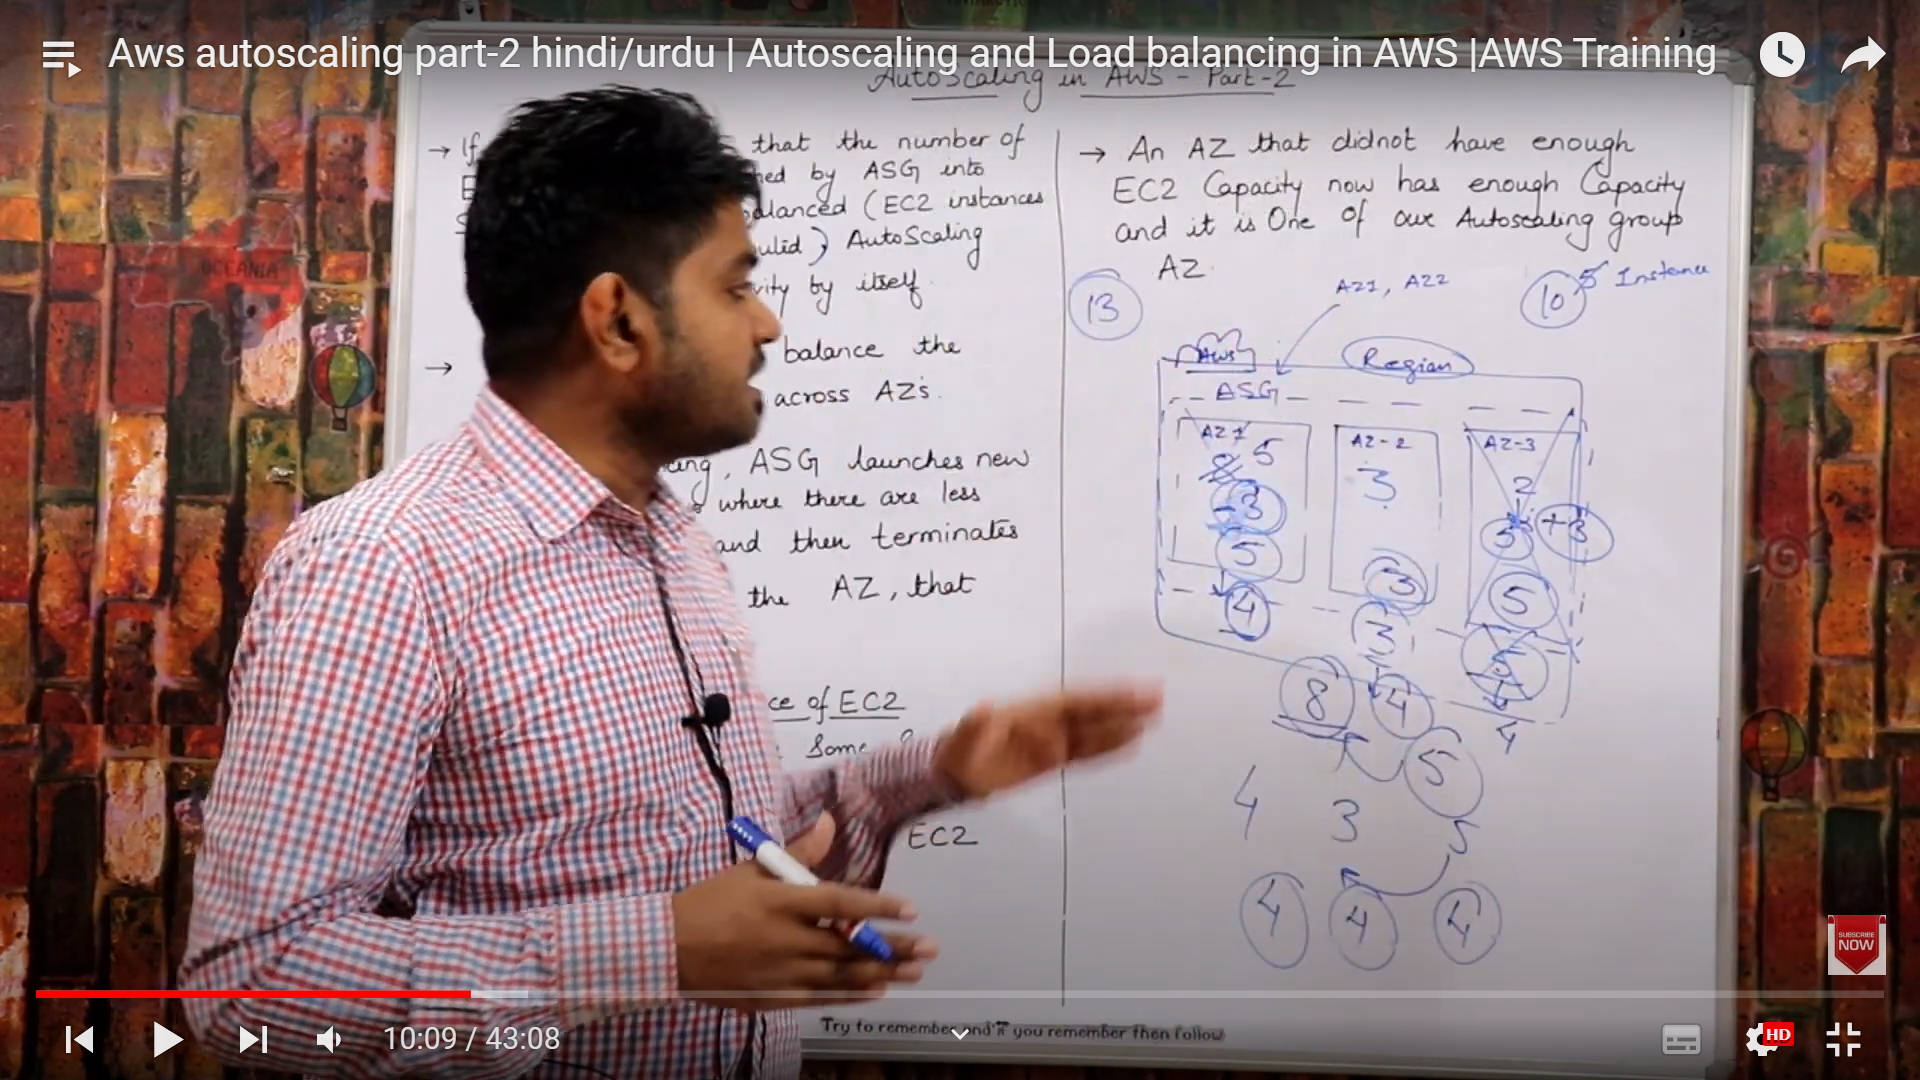 Aws autoscaling part-2 hindi/urdu | Autoscaling and Load balancing in AWS |AWS Training
AutoScaling in AWS - Part-2
→ If that the number of
by ASG into
(EC2 instances
AutoScaling
by itself
→ balance the
across AZ's.
, ASG launches new
where there are less
and then terminates
the AZ, that
of EC2
Some
EC2
→ An AZ that didnot have enough
EC2 Capacity now has enough Capacity
and it is One of our Autoscaling group
AZ
13
AZ1, AZ2
10
5 Instance
AWS
Region
ASG
AZ-2
AZ-3
5
3
2
-3
5
+3
5
3
5
4
3
8
4
4
5
4 3 5
4 4 4
OCEANIA
SUBSCRIBE
NOW
10:09 / 43:08
HD
Try to remember you remember then follow